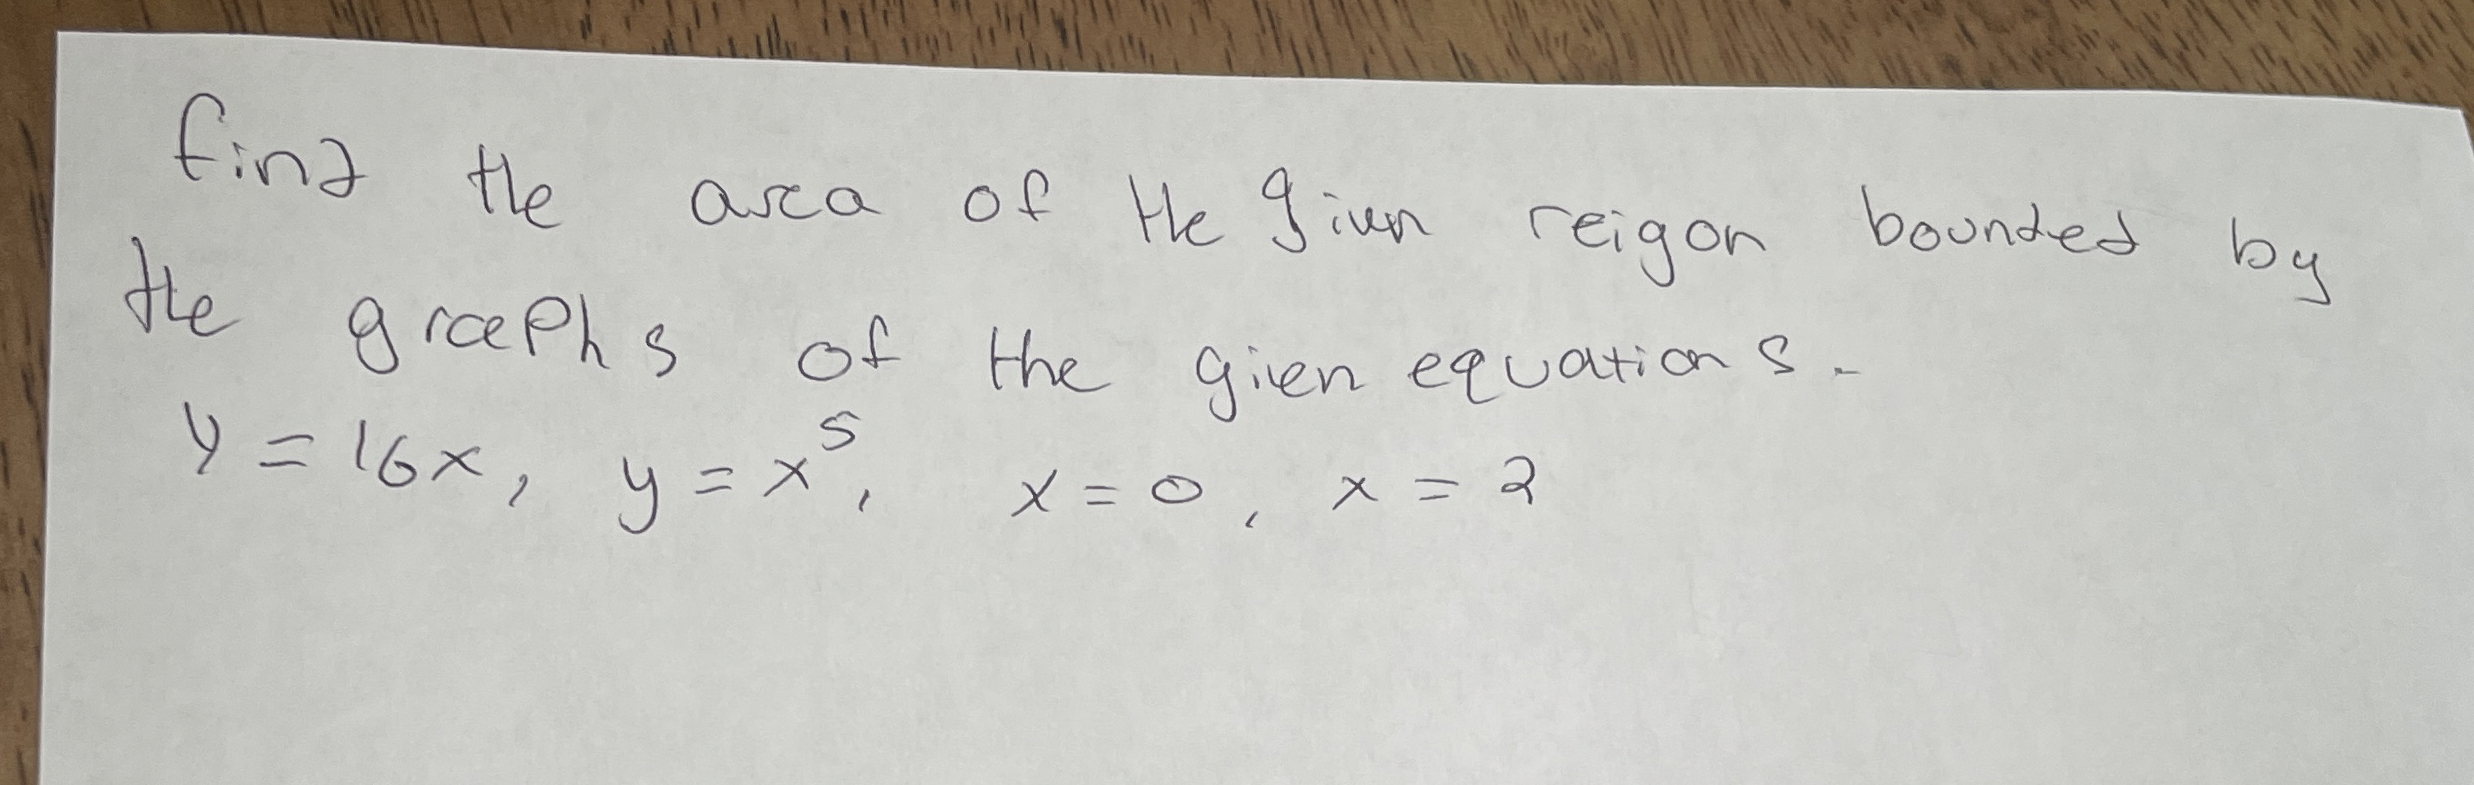 find the area of the given reigon bounded by
the graphs of the given equations.
y = 16x, y = x⁵, x = 0, x = 2